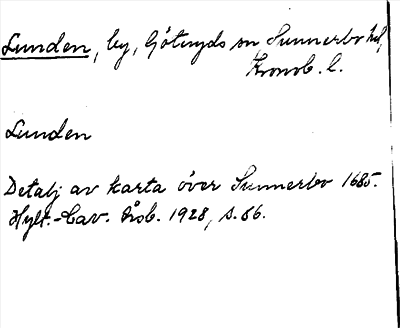 Lunden, by, Göteryds sn Sunnerbo hd,
Kronob. l.
Lunden
Detalj av karta över Sunnerbo 1685.
Hylt.-Cav. Årsb. 1928, s. 56.